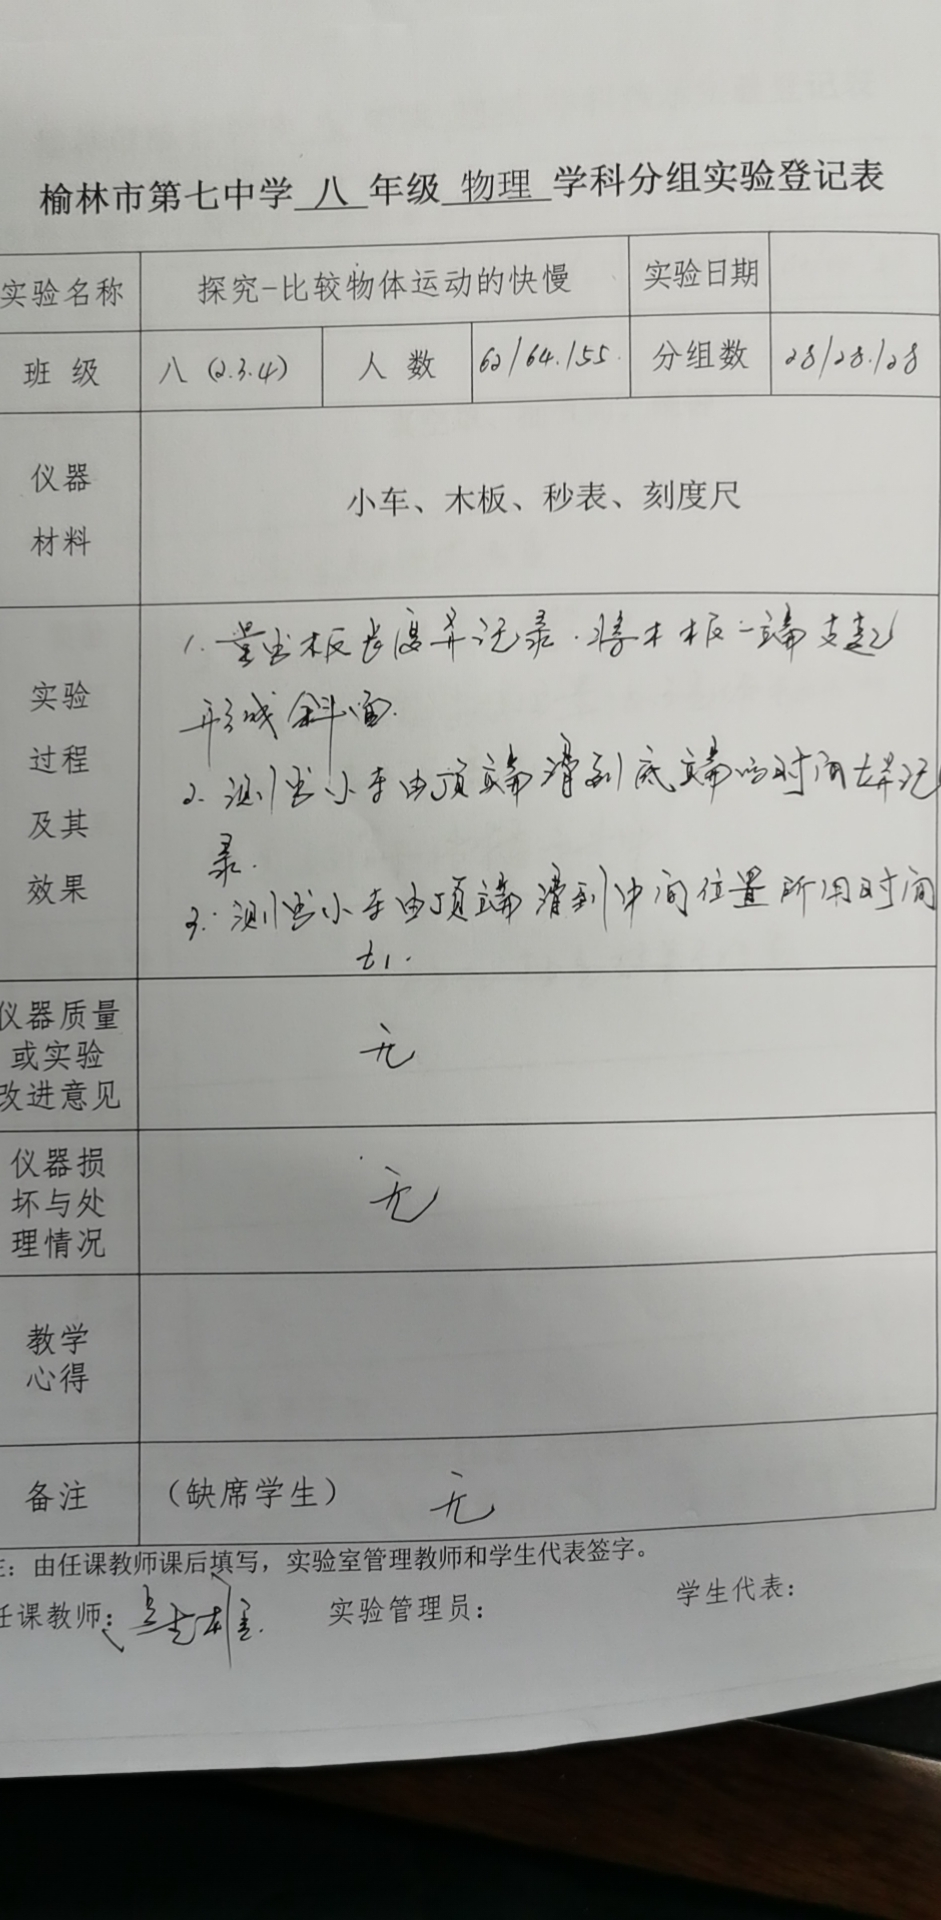 榆林市第七中学 八 年级 物理 学科分组实验登记表
实验名称 探究-比较物体运动的快慢 实验日期
班 级 八 (2.3.4) 人 数 62/64./55. 分组数 28/28./28
仪器
材料
小车、木板、秒表、刻度尺
实验
过程
及其
效果
1. 量出板长度并记录.将木板一端支起
形成斜面.
2. 测出小车由顶端滑到底端的时间t并记
录.
3. 测出小车由顶端滑到中间位置所用时间
t1.
仪器质量
或实验
改进意见
无
仪器损
坏与处
理情况
无
教学
心得
备注 (缺席学生) 无
注: 由任课教师课后填写,实验室管理教师和学生代表签字。
任课教师: 实验管理员: 学生代表: